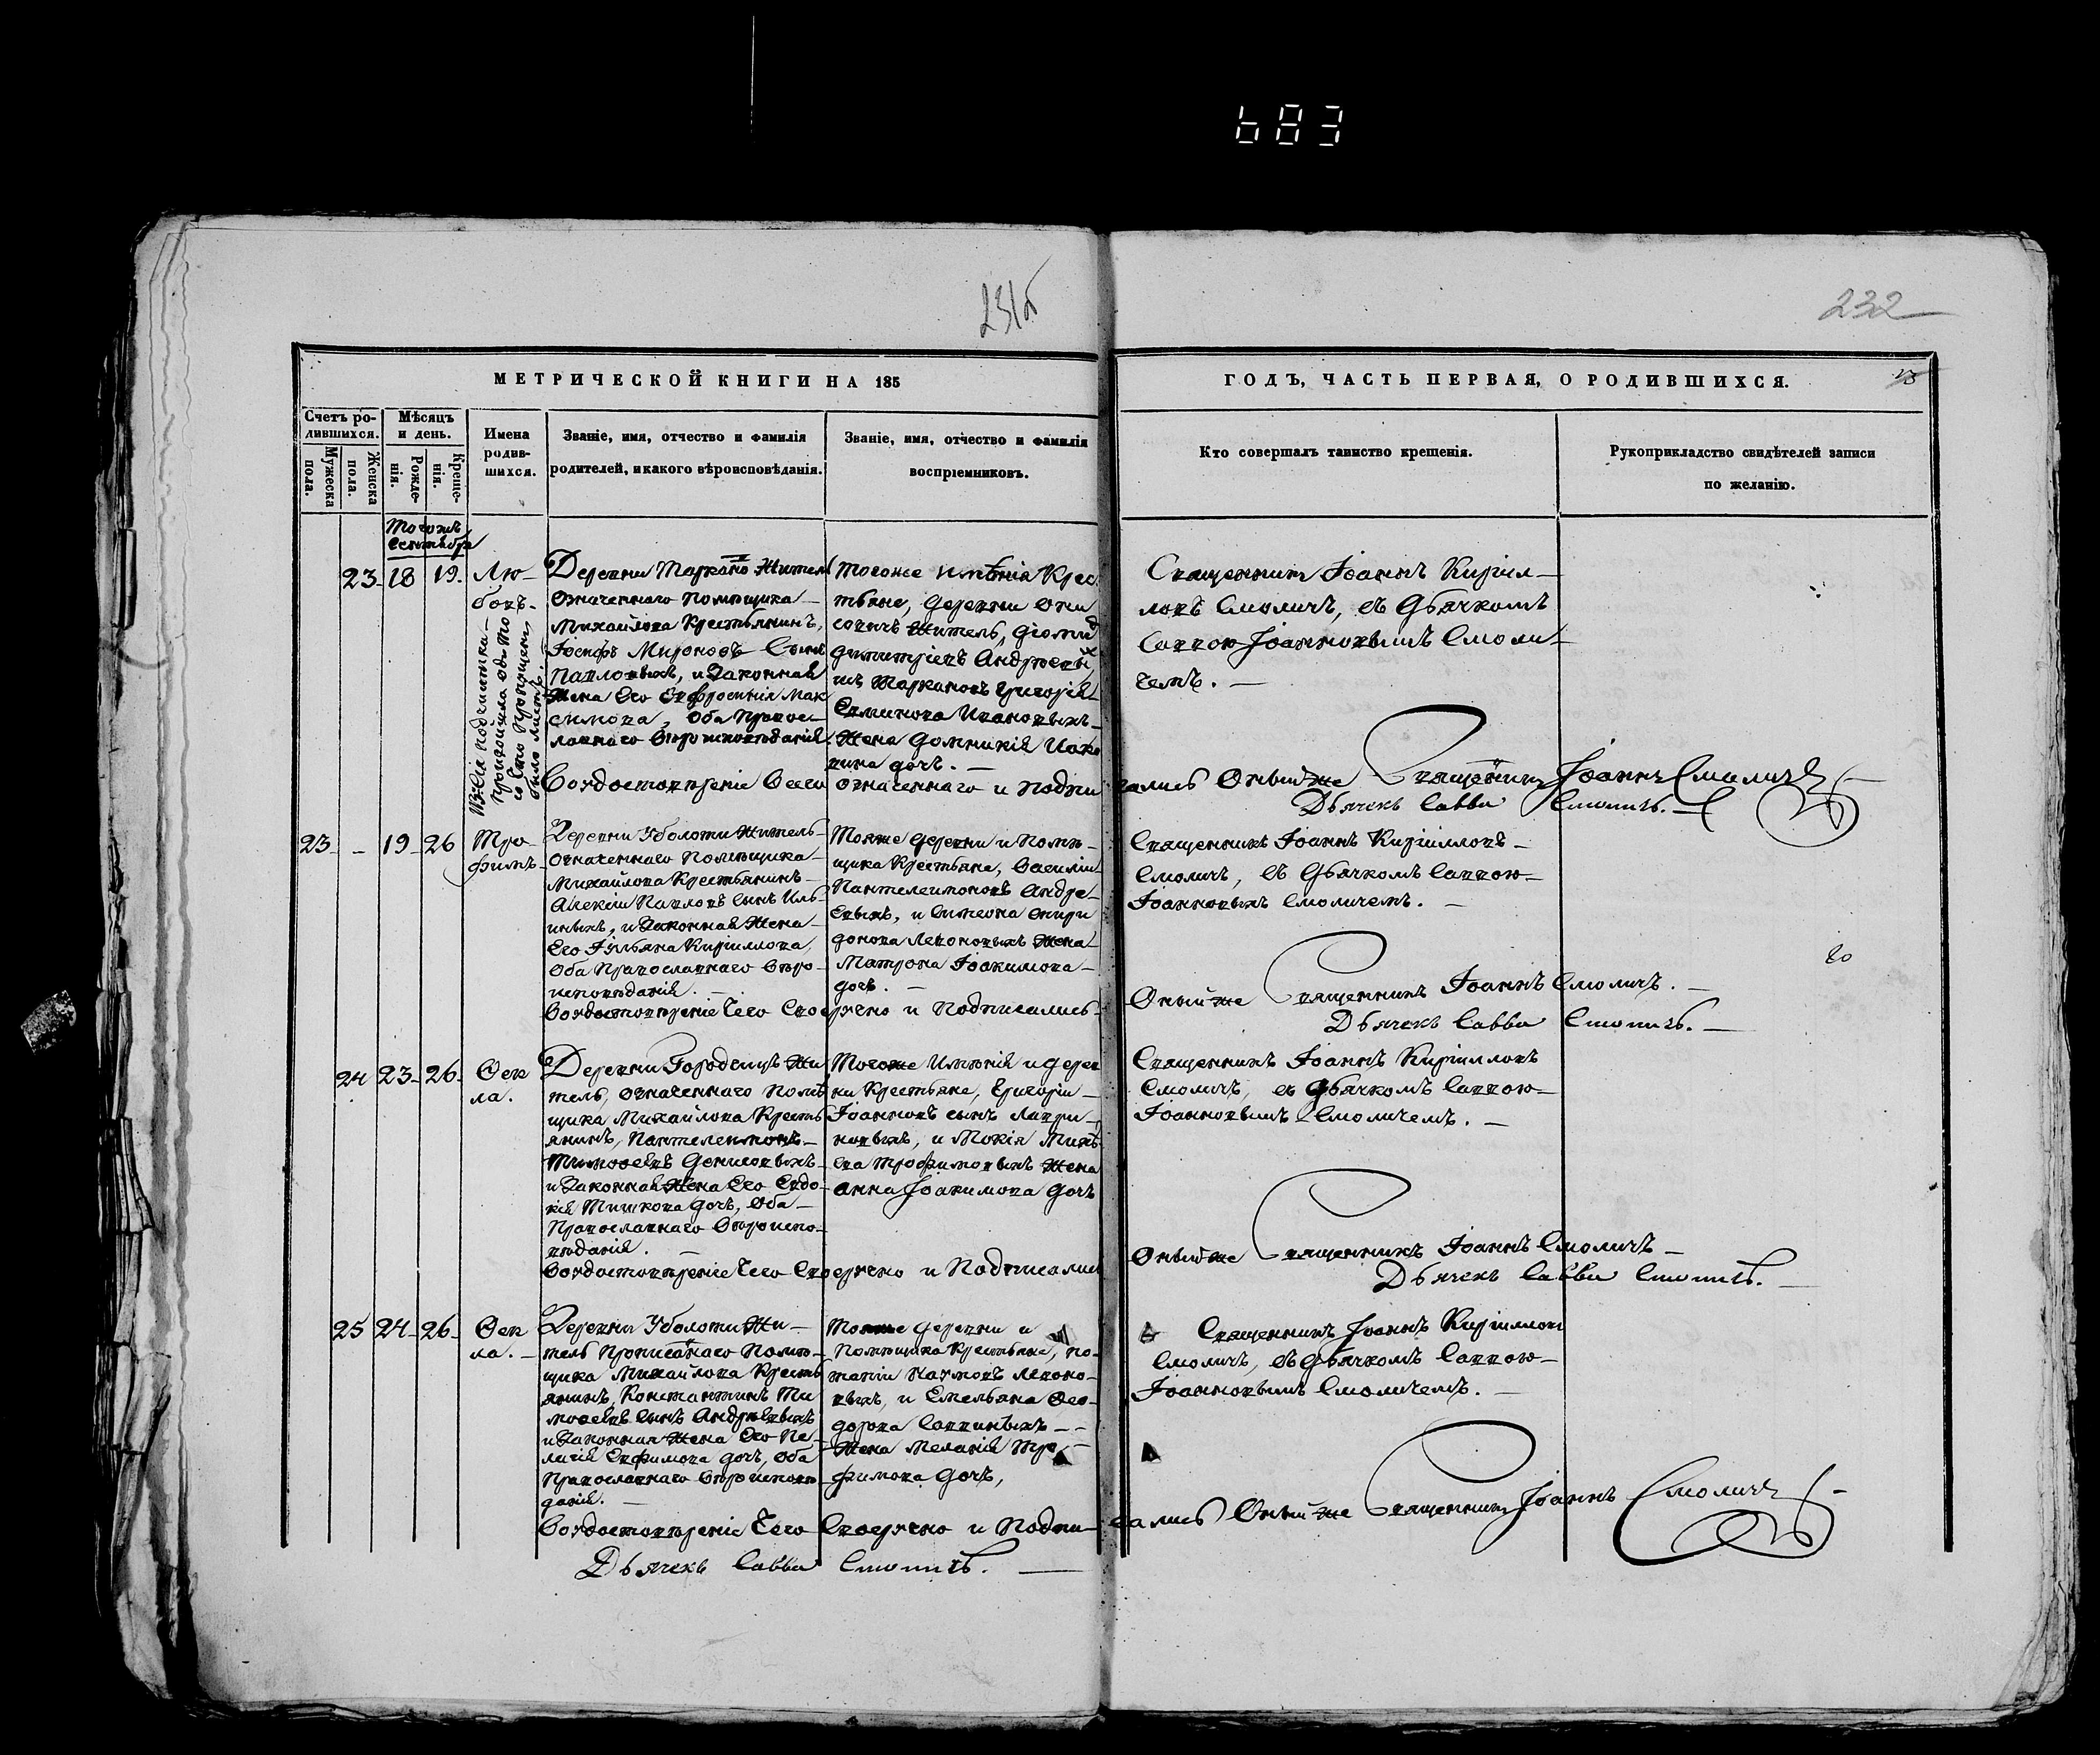 683
231б
232
МЕТРИЧЕСКОЙ КНИГИ НА 185
ГОДЪ, ЧАСТЬ ПЕРВАЯ, О РОДИВШИХСЯ.
13
Счетъ ро-
дившихся.
Мужеска
пола.
Женска
пола.
Мѣсяцъ
и день.
Рожде-
нія.
Креще-
нія.
Имена
родив-
шихся.
Званіе, имя, отчество и фамилія
родителей, и какого вѣроисповѣданія.
Званіе, имя, отчество и фамилія
воспріемниковъ.
Кто совершалъ таинство крещенія.
Рукоприкладство свидѣтелей записи
по желанію.
Тогожъ
Сентября
23 18 19.
Лю-
бовь.
Деревни Маркано Житель
означеннаго Помѣщика
Михайлова Крестьянинъ,
Іосифъ Мироновъ Сынъ
Павловыхъ, и Законная
Жена Его Евфросинія Мак
симова, Оба Правос-
лавнаго Вѣроисповѣданія.
Тогоже Имѣнія Крес
тьяне, деревни
Житель, Діомид
Димитріевъ Андреевы
Григорія
Ивановыхъ
Жена Домникія
дочь.
Священникъ Іоаннъ Кирил-
ловъ Смоличъ, съ Дьячкомъ
Саввою Іоанновымъ Смоли-
чемъ.
Вовдостовѣреніе Всего означеннаго и Подпи сались Оный же Священникъ Іоаннъ Смоличъ
Дьячекъ Савва Смоличъ.
23 - 19 26
Тро
фимъ
Деревни Уболоти Житель
означеннаго Помѣщика
Михайлова Крестьянинъ
Алексій Павловъ сынъ Иль-
иныхъ, и Законная Жена
Его Іульяна Кириллова,
Оба Православнаго Вѣро-
исповѣданія.
Тояже деревни и Помѣ-
щика Крестьяне, Василій
Пантелеимоновъ Андре-
евыхъ, и Симеона Спири
донова Леоновыхъ Жена
Матрона Іоакимова
дочь.
Священникъ Іоаннъ Кирилловъ
Смоличъ, съ Дьячкомъ Саввою
Іоанновымъ Смоличемъ.
Вовдостовѣреніе Чего Своеручно и Подписались
Оный же Священникъ Іоаннъ Смоличъ.
Дьячекъ Савва Смоличъ.
24 23 26
Фек
ла.
Деревни Городецъ Жи
тель, означеннаго Помѣ
щика Михайлова Кресть
янинъ, Пантелеимонъ
Тимофеевъ Денисовыхъ
и Законная Жена Его Евдо-
кія Тишкова дочь, Оба
Православнаго Вѣроиспо-
вѣданія.
Тогоже Имѣнія и дерев
ни Крестьяне, Григорій
Іоанновъ сынъ Лаври-
новыхъ, и Мокія Михѣ
ева Трофимовыхъ Жена
Анна Іоакимова дочь
Священникъ Іоаннъ Кирилловъ
Смоличъ, съ Дьячкомъ Саввою
Іоанновымъ Смоличемъ.
Вовдостовѣреніе Чего Своеручно и Подписались
Оный же Священникъ Іоаннъ Смоличъ
Дьячекъ Савва Смоличъ.
25 24 26
Фек
ла.
Деревни Уболоти Жи-
тель Прописаннаго Помѣ-
щика Михайлова Кресть
янинъ, Константинъ Ти
мофеевъ сынъ Андреевыхъ
и Законная Жена Его Пе-
лагія Евфимова дочь, Оба
Православнаго Вѣроисповѣ
данія.
Тояже деревни и
Помѣщика Крестьяне, По-
тапій Наумовъ Леоно-
выхъ, и Емельяна Фео-
дорова Саввиныхъ
Жена Меланія Тро-
фимова дочь,
Священникъ Іоаннъ Кириллов
Смоличъ, съ Дьячкомъ Саввою
Іоанновымъ Смоличемъ.
Вовдостовѣреніе Чего Своеручно и Подпи сались Оный же Священникъ Іоаннъ Смоличъ
Дьячекъ Савва Смоличъ.